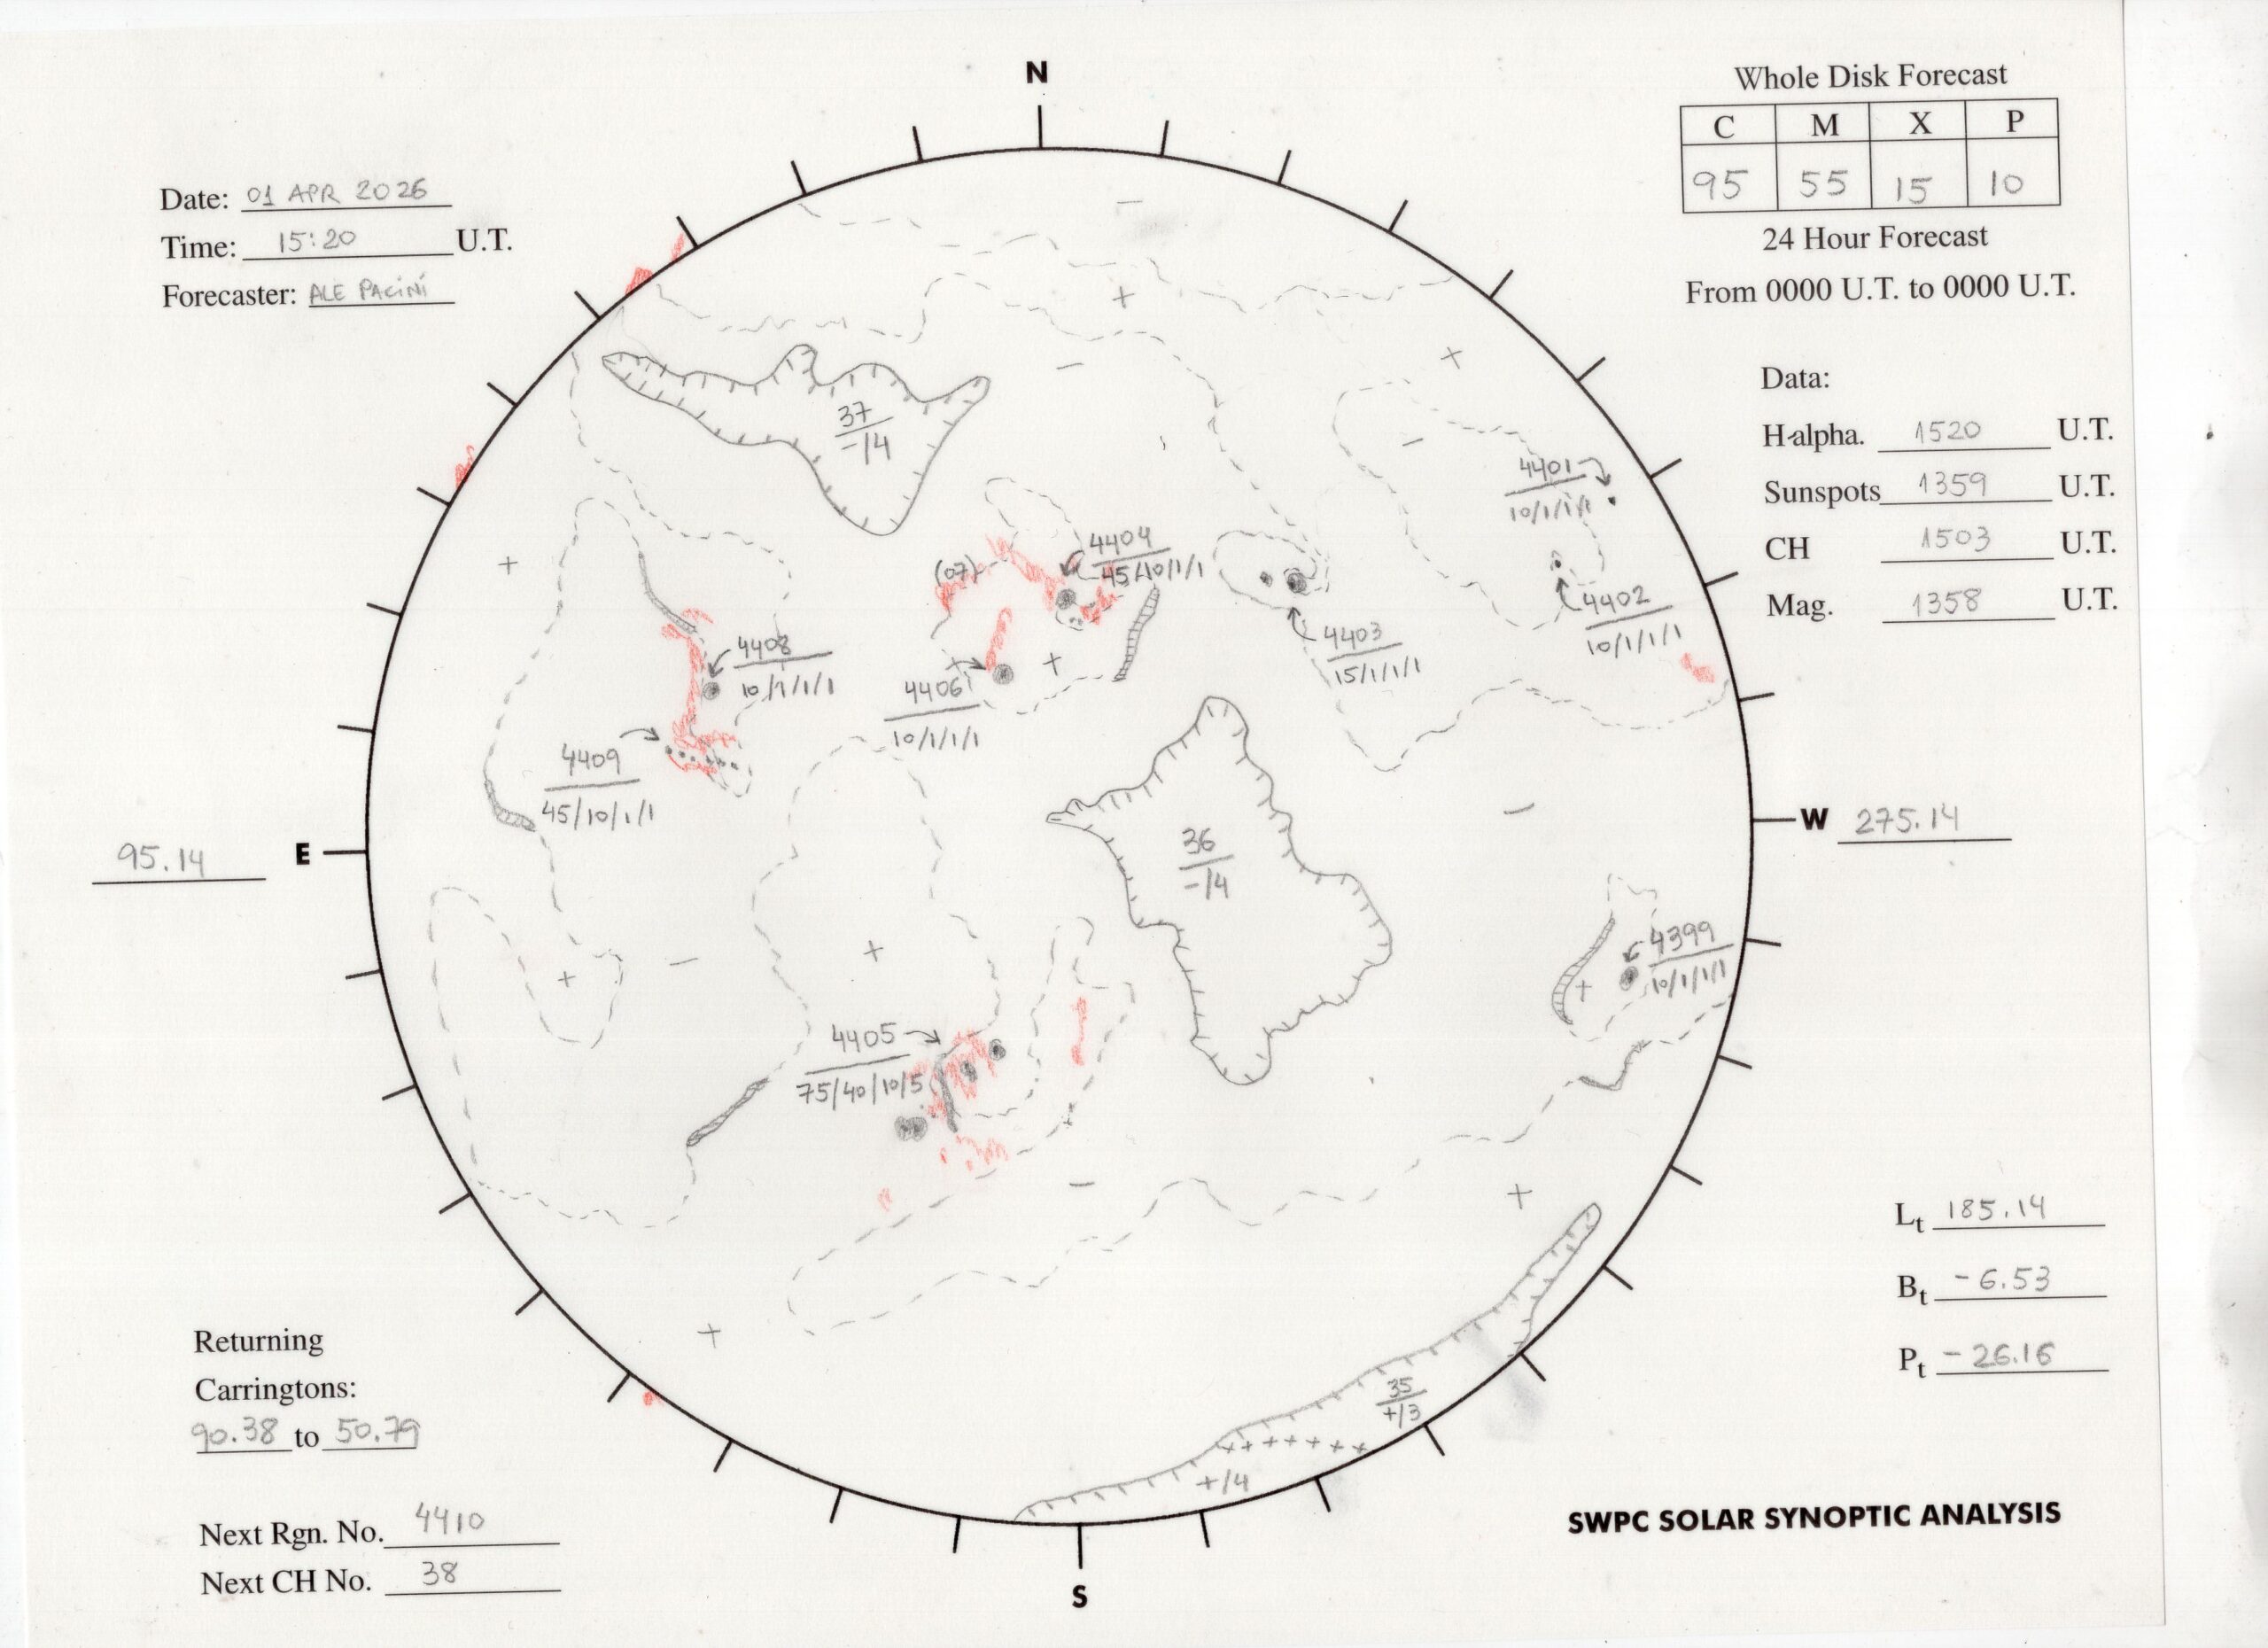 N
Whole Disk Forecast
C M X P
95 55 15 10
24 Hour Forecast
From 0000 U.T. to 0000 U.T.
Date: 01 APR 2026
Time: 15:20 U.T.
Forecaster: ALE PACINI
Data:
H-alpha. 1520 U.T.
Sunspots 1359 U.T.
CH 1503 U.T.
Mag. 1358 U.T.
37
-/4
4401
10/1/1/1
4404
45/10/1/1
(07)
4402
10/1/1/1
4403
15/1/1/1
4408
10/1/1/1
4406
10/1/1/1
4409
45/10/1/1
95.14 E
W 275.14
36
-/4
4399
10/1/1/1
4405
75/40/10/5
Lt 185.14
Bt -6.53
Pt -26.16
Returning
Carringtons:
90.38 to 50.79
35
+/3
+++++++
+/4
Next Rgn. No. 4410
Next CH No. 38
S
SWPC SOLAR SYNOPTIC ANALYSIS